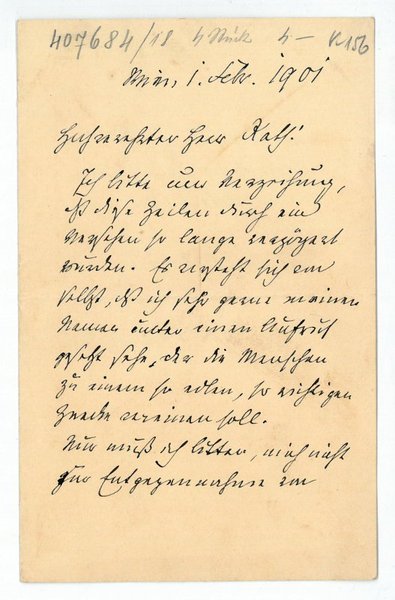 407684/18 4 Stück 4 –
Wien, 1. Febr. 1901
Hochverehrter Herr Rath!
Ich bitte um Verzeihung,
daß diese Zeilen durch ein
Versehen so lange verzögert
wurden. Es versteht sich von
selbst, daß ich sehr gerne meinen
Namen unter einen Aufruf
gesetzt sehe, der die Menschen
zu einem so edlen, so wichtigen
Zwecke vereinen soll.
Nur muß ich bitten, mich nicht
zur Entgegennahme von